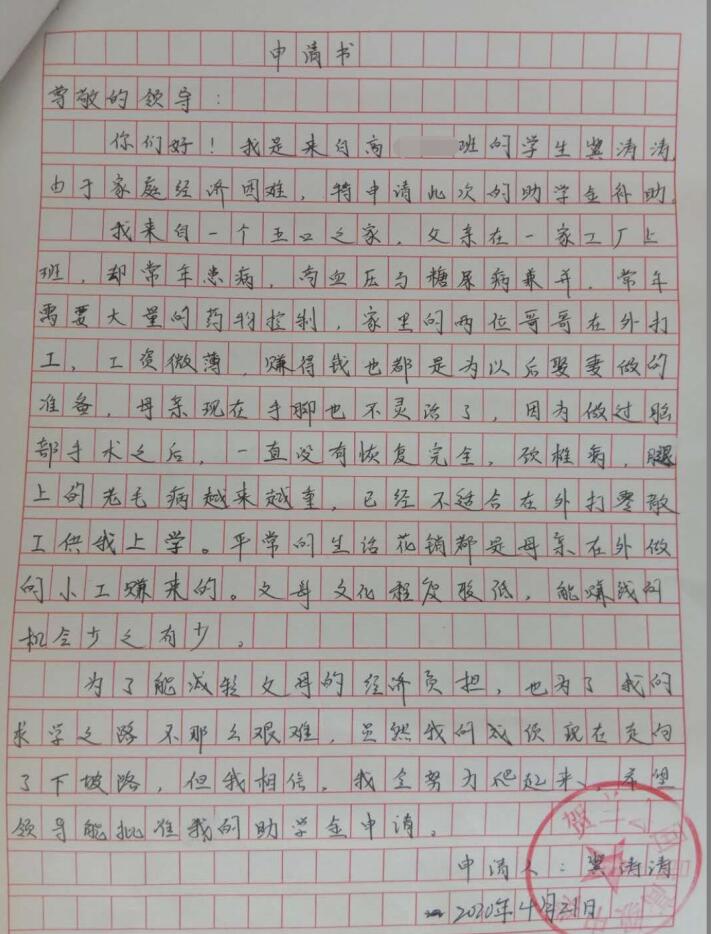 申请书
尊敬的领导：
你们好！我是来自高 班的学生冀涛涛
由于家庭经济困难，特申请此次的助学金补助。
我来自一个五口之家，父亲在一家工厂上
班，却常年患病，高血压与糖尿病兼并，常年
需要大量的药物控制，家里的两位哥哥在外打
工，工资微薄，赚得钱也都是为以后娶妻做的
准备，母亲现在手脚也不灵活了，因为做过脑
部手术之后，一直没有恢复完全，颈椎病，腿
上的老毛病越来越重，已经不适合在外打零散
工供我上学。平常的生活花销都是母亲在外做
的小工赚来的。父母文化程度较低，能赚钱的
机会少之有少。
为了能减轻父母的经济负担，也为了我的
求学之路不那么艰难，虽然我的成绩现在走向
了下坡路，但我相信，我会努力爬起来、希望
领导能批准我的助学金申请。
申请人：冀涛涛
2020年4月21日
贺兰